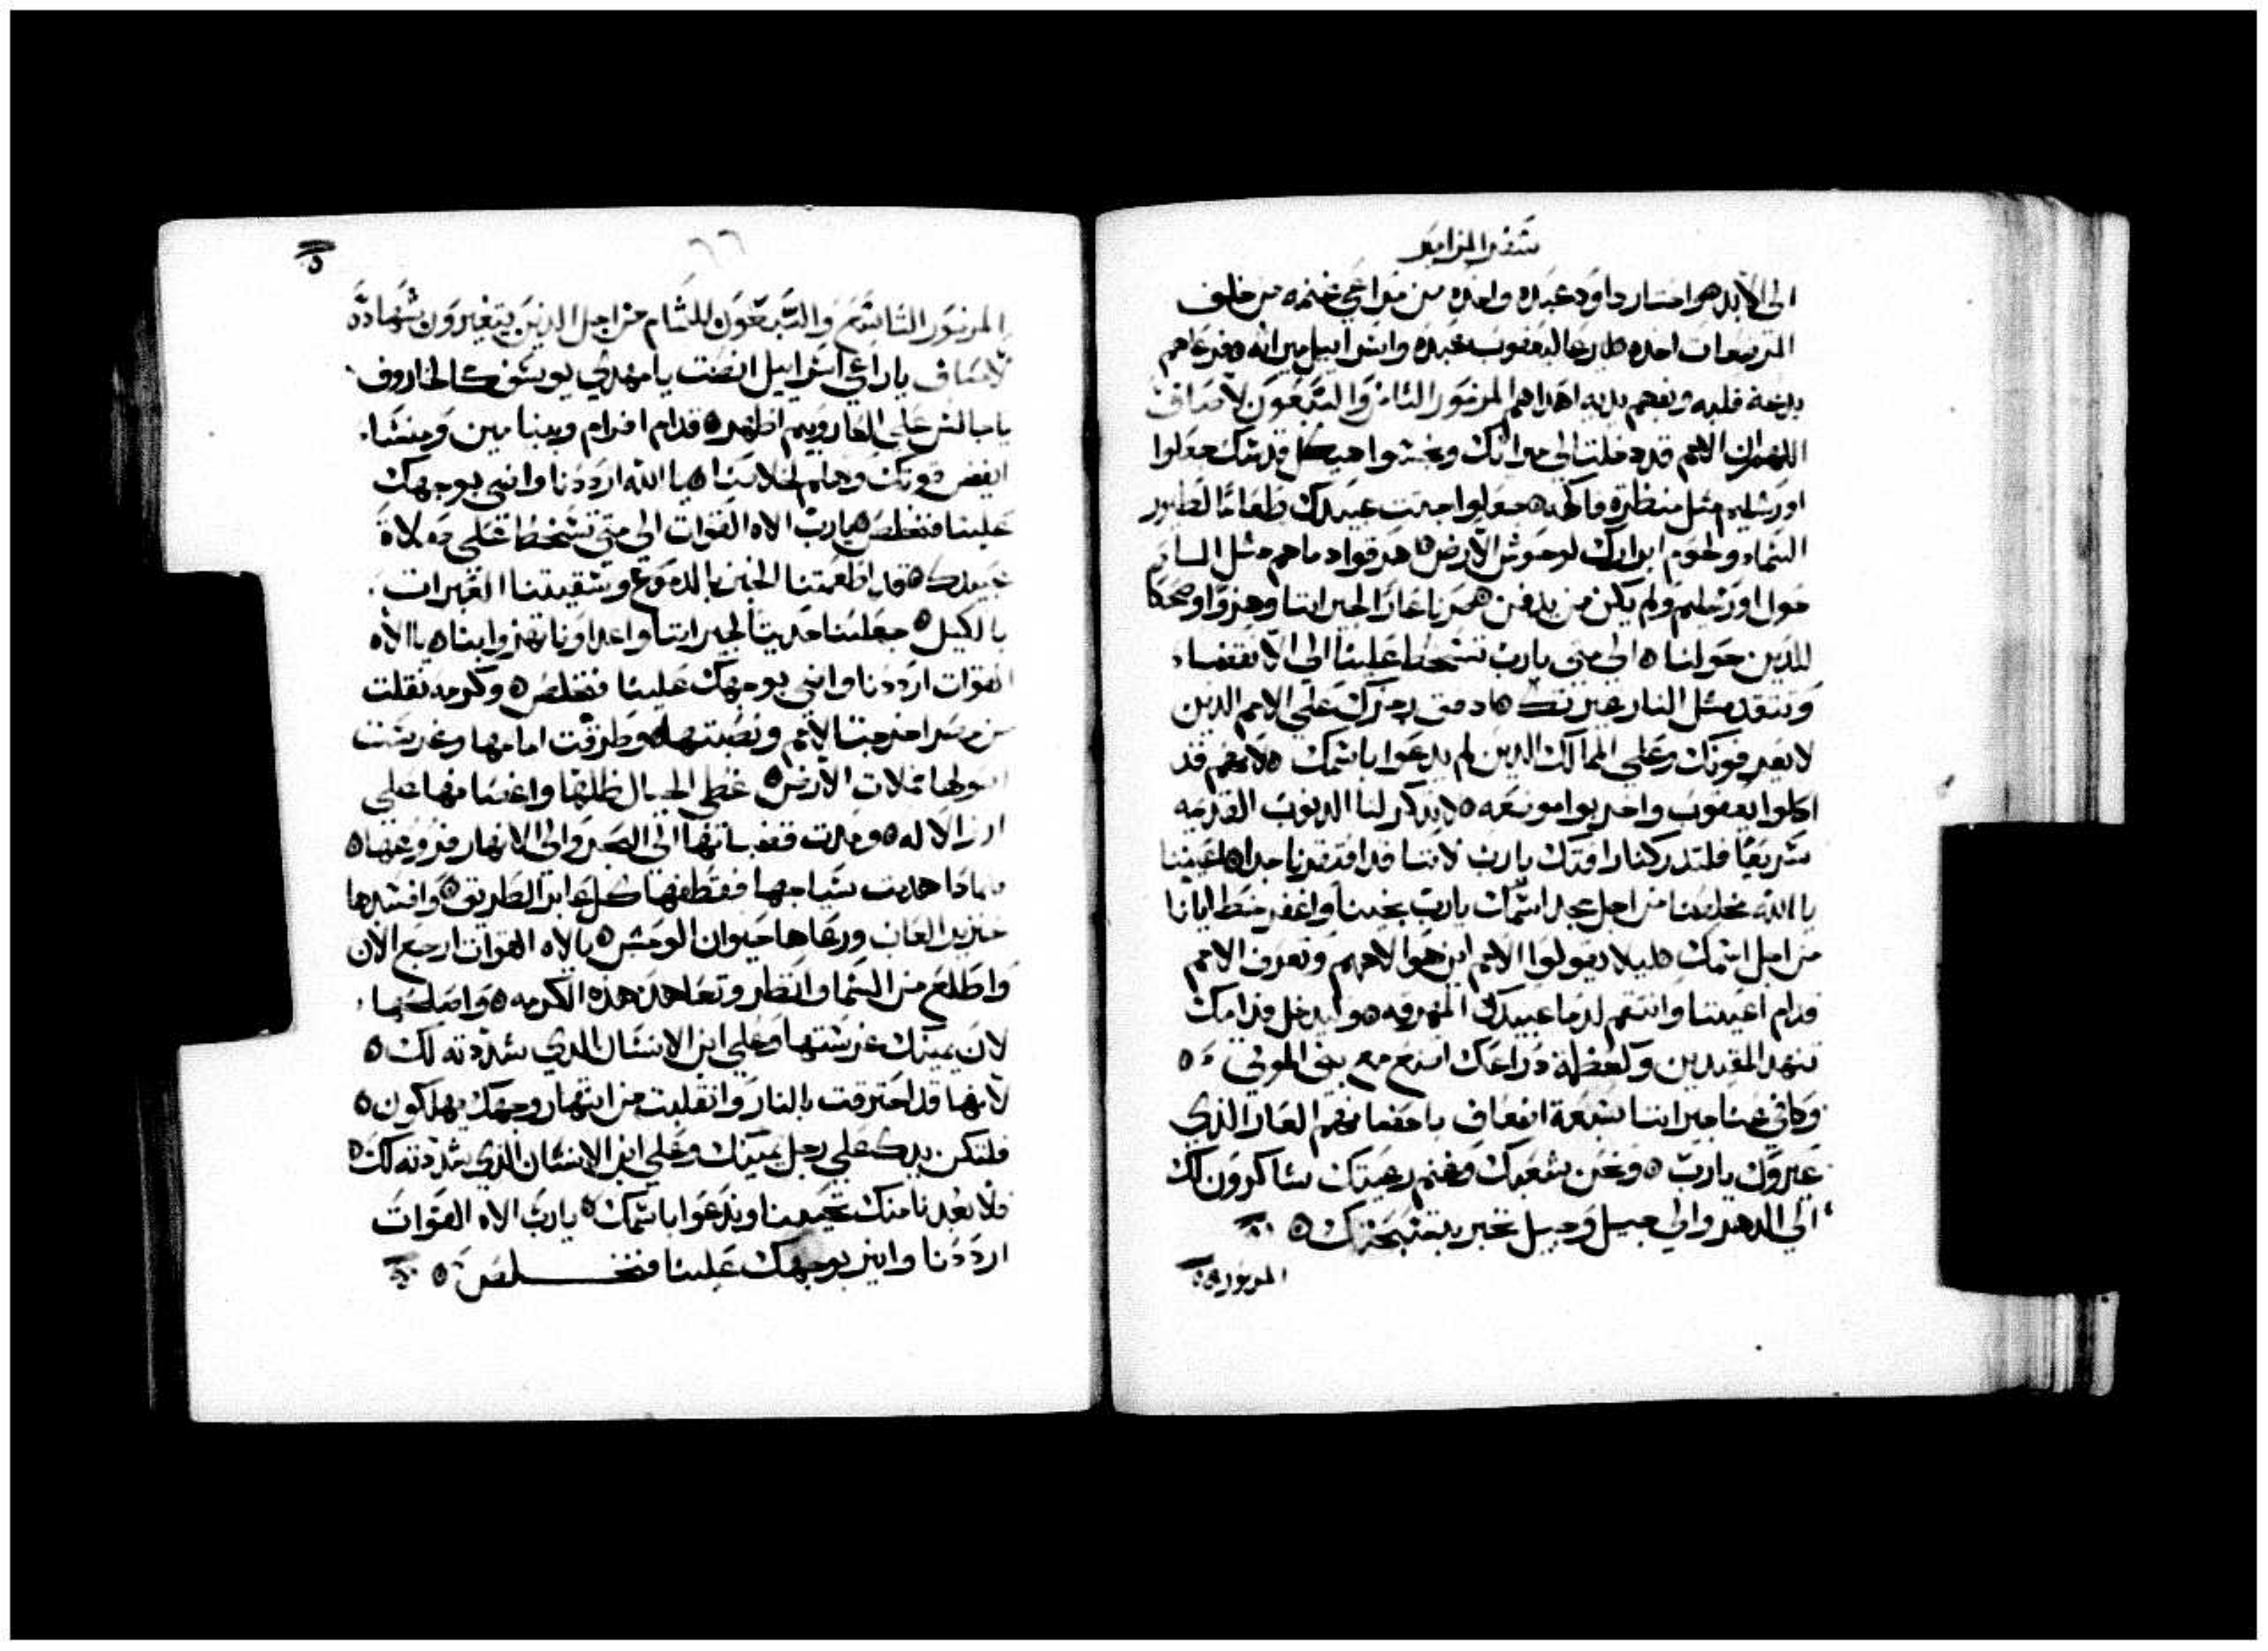 سفر المزامير
الى الأبد هو اختار داود عبده واخده من مراعي غنمه من خلف
المرضعات اخده ليرعا ليعقوب عبده واسراييل ميراثه فرعاهم
بدعة قلبه وبفهم يديه اهداهم المزمور الثامن والسبعون لاصاف
اللهم ان الامم قد دخلت الى ميراثك ونجسوا هيكل قدسك جعلوا
اورشليم مثل منظرة فاكهه جعلوا جثت عبيدك طعاما لطيور
السماء ولحوم ابرارك لوحوش الأرض هرقوا دماهم مثل الما
حول اورشليم ولم يكن من يدفن صرنا عارا لجيراننا وهزوا وضحكا
للذين حولنا الى متى يارب تسخط علينا الى الانقضاء
وتتقد مثل النار غيرتك صب رجزك على الامم الدين
لا يعرفونك وعلى الممالك الدين لم يدعوا باسمك لانهم قد
اكلوا يعقوب واخربوا موضعه لا تدكر لنا الدنوب القديمه
سريعا فلتدركنا رافتك يارب لاننا قد افتقرنا جدا اعيننا
يا الله مخلصنا من اجل مجد اسمك يارب نجينا واغفر خطايانا
من اجل اسمك ليلا يقولوا الامم اين هو الاههم وتعرف الامم
قدام اعيننا وانتقم لدما عبيدك المهروقه وليدخل قدامك
تنهد المقيدين وكعظمة دراعك امنع مع بني الموتى
وكافي عنا جيراننا سبعة اضعاف باحضانهم العار الذي
عيروك يارب ونحن شعبك وغنم رعيتك شاكرون لك
الى الدهر والى جيل وجيل نخبر بتسبحتك
المزمور
المزمور التاسع والسبعون للتمام من اجل الدين يتغيرون شهادة
لاصاف ياراعي اسراييل انصت يا مهدي يوسف كالخاروف
يا جالس على الخاروبيم اظهر قدام افرام وبنيامين ومنشا
انهض قوتك وهلم لخلاصنا يا الله ارددنا وانير بوجهك
علينا فنخلص يارب الاه القوات الى متى تسخط على صلاة
عبيدك قد اطعمتنا الخبز بالدموع وسقيتنا العبرات
بالكيل جعلتنا حديثا لجيراننا واعداونا تهزوا بنا يا الاه
القوات ارددنا وانير بوجهك علينا فنخلص وكرمه نقلت
من مصر اخرجت الأمم ونصبتها وطرقت امامها وغرست
اصولها فملات الأرض غطى الجبال ظلها واغصانها على
ارز الاله ومدت قضبانها الى البحر والى الانهار فروعها
لمادا هدمت سياجها فقطفها كل عابر الطريق وافسدها
خنزير الغاب ورعاها حيوان الوحش يا الاه القوات ارجع الان
واطلع من السما وانظر وتعاهد هذه الكرمه واصلحها
لان يمينك غرستها وعلى ابن الانسان الذي شددته لك
لانها قد احترقت بالنار وانقلبت من انتهار وجهك يهلكون
فلتكن يدك على رجل يمينك وعلى ابن الانسان الذي شددته لك
فلا نبعدنا منك تحيينا وندعوا باسمك يارب الاه القوات
ارددنا وانير بوجهك علينا فنخلص